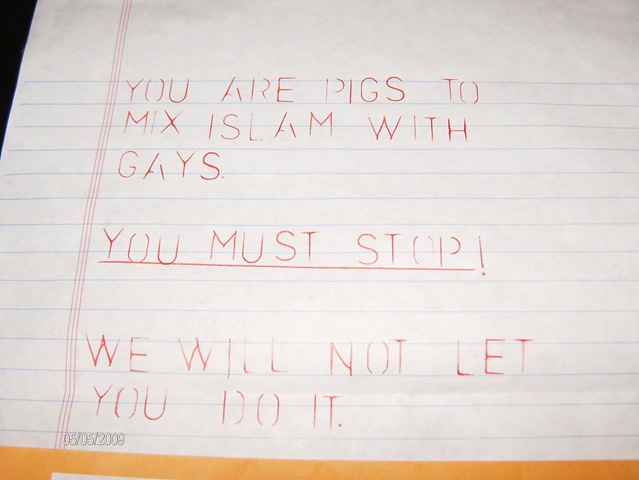 YOU ARE PIGS TO
MIX ISLAM WITH
GAYS.
YOU MUST STOP!
WE WILL NOT LET
YOU DO IT.
05/05/2009